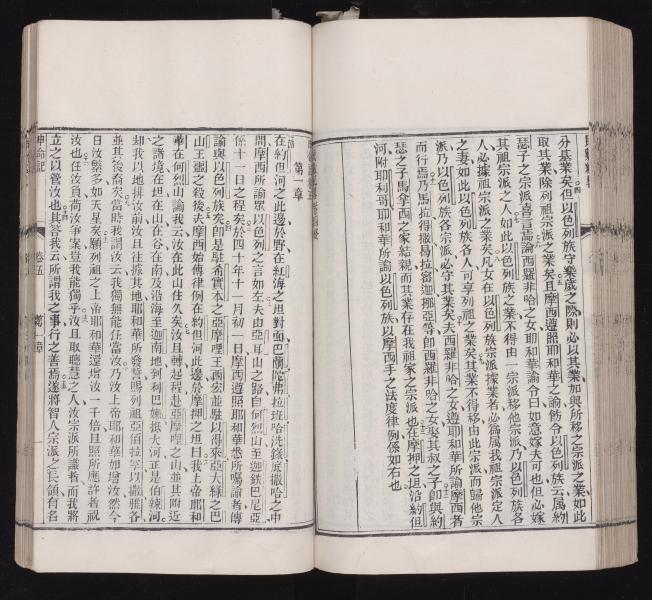 分基業矣但以色列族守樂歲之際則必以其業加與所移之宗派之業如此
取其業除列祖宗派之業矣且摩西遵照耶和華之諭飭令以色列族云属約
瑟子之宗派喜言焉論西羅非哈之女耶和華諭令曰如意嫁夫可也但必嫁
其祖宗派之人如此以色列族之業不得由一宗派移他宗派乃以色列族各
人必據祖宗派之業矣凡女在以色列族宗派據業者必為属我祖宗派定人
之妻如此以色列族各人可享列祖之業矣其業不得移由此宗派而歸他宗
派乃以色列族各宗派必守其業矣夫西羅非哈之女遵耶和華所諭摩西者
而行焉乃馬拉得撒曷拉密迦挪亞等卽西羅非哈之女娶其叔之子卽與約
瑟之子馬拿西之家結親而其業存在我祖家之宗派也在摩押之坦沿約但
河附耶利哥耶和華所諭以色列族以摩西手之法度律例係如右也
第一章
在約但河之此邊於野在紅海之坦對面巴蘭陀弗拉班哈洗錄底撒哈之中
間摩西所諭眾以色列之言如左夫由亞耳山之路自何烈山至迦鉄巴尼亞
係十一日之程矣於四十年十一月初一日摩西遵照耶和華悉所囑諭者傳
諭與以色列族矣卽是駐希實本之亞摩哩王西宏並駐以得來亞大緑之巴
山王噩之殺後夫摩西始傳律例在約但河此邊於摩押之坦曰我上帝耶和
華在何烈山諭我云汝在此山住久矣汝且轉起程赴亞摩哩之山並其附近
之諸境在坦在山在谷在南及沿海至迦南地到利巴嫩抵大河正是伯辣河
却我以地排汝前汝且往據其地耶和華所發誓賜列祖亞伯拉罕以撒雅各
並其後裔矣當時我謂汝云我獨無能任當汝乃汝上帝耶和華加增汝然今
日汝繁多如天星矣願列祖之上帝耶和華還增汝一千倍且照所應許者祝
汝也任汝負荷汝爭案豈我能獨乎汝且取聰慧之人汝宗派所識者而我將
立之以管汝也其答我云所謂我之事行之善焉遂將智人宗派之長領有名
申命記
卷五
第一章